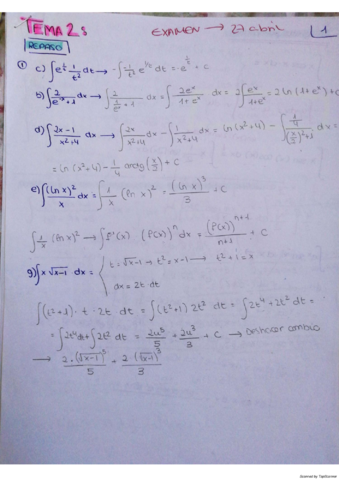 TEMA 2:
EXAMEN → 27 abril
1
REPASO
① c) ∫e^(1/t) 1/t² dt → -∫-1/t² e^(1/t) dt = -e^(1/t) + C
b) ∫2/(e^-x + 1) dx → ∫2/(1/e^x + 1) dx = ∫2e^x/(1+e^x) dx = 2∫e^x/(1+e^x) = 2 ln (1+e^x) + C
d) ∫(2x-1)/(x²+4) dx → ∫2x/(x²+4) dx - ∫1/(x²+4) dx = ln (x²+4) - ∫(1/4)/((x/2)²+1) dx =
= ln (x²+4) - 1/4 arctg (x/2) + C
e) ∫(ln x)²/x dx = ∫1/x (ln x)² = (ln x)³/3 + C
∫1/x (ln x)² → ∫f'(x) (f(x))^n dx = (f(x))^(n+1)/(n+1) + C
g) ∫x √x-1 dx = { t = √x-1 → t² = x-1 → t²+1 = x
dx = 2t dt
∫(t²+1) · t · 2t dt = ∫(t²+1) 2t² dt = ∫2t⁴ + 2t² dt =
= ∫2t⁴ dt + ∫2t² dt = 2u⁵/5 + 2u³/3 + C → Deshacer cambio
→ 2·(√x-1)⁵/5 + 2(√x-1)³/3
Scanned by TapScanner